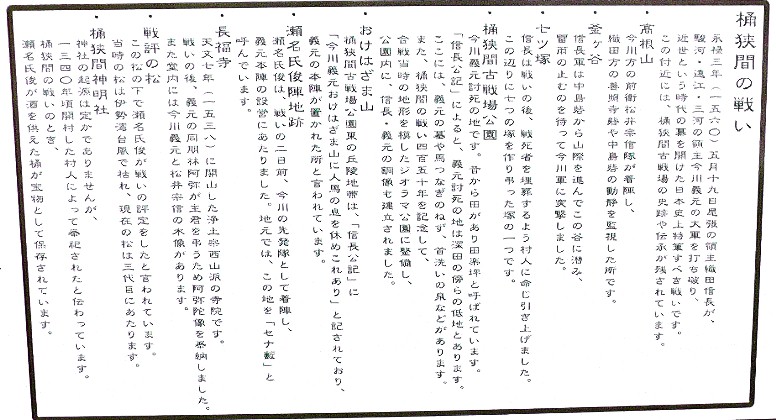 桶狭間の戦い
永禄三年（一五六〇）五月十九日尾張の領主織田信長が、
駿河・遠江・三河の領主今川義元の大軍を打ち破り、
近世という時代の幕を開けた日本史上特筆すべき戦いです。
この付近には、桶狭間古戦場の史跡や伝承が残されています。
・高根山
今川方の前衛松井宗信隊が着陣し、
織田方の善照寺砦や中島砦の動静を監視した所です。
・釜ヶ谷
信長軍は中島砦から山際を進んでこの谷に潜み、
雷雨の止むのを待って今川軍に突撃しました。
・七ツ塚
信長は戦いの後、戦死者を埋葬するよう村人に命じ引き上げました。
この辺りに七つの塚を作り弔った塚の一つです。
・桶狭間古戦場公園
今川義元討死の地です。昔から田があり田楽坪と呼ばれています。
「信長公記」によると、義元討死の地は深田の傍らの低地とあります。
ここには、義元の墓や馬つなぎのねず、首洗いの泉などがあります。
また、桶狭間の戦い四百五十年を記念して、
合戦当時の地形を模したジオラマ公園に整備し、
公園内に、信長・義元の銅像も建立されました。
・おけはざま山
桶狭間古戦場公園東の丘陵地帯は、「信長公記」に
「今川義元おけはざま山に人馬の息を休めこれあり」と記されており、
義元の本陣が置かれた所と言われています。
・瀬名氏俊陣地跡
瀬名氏俊は、戦いの二日前、今川の先発隊として着陣し、
義元本陣の設営にあたりました。地元では、この地を「セナ藪」と
呼んでいます。
・長福寺
天文七年（一五三八）に開山した浄土宗西山派の寺院です。
戦いの後、義元の同朋林阿弥が主君を弔うため阿弥陀像を奉納しました。
また堂内には今川義元と松井宗信の木像があります。
・戦評の松
この松の下で瀬名氏俊が戦いの評定をしたと言われています。
当時の松は伊勢湾台風で枯れ、現在の松は三代目にあたります。
・桶狭間神明社
神社の起源は定かでありませんが、
一三四〇年頃開村した村人によって奉祀されたと伝わっています。
桶狭間の戦いのとき、
瀬名氏俊が酒を供えた桶が宝物として保存されています。